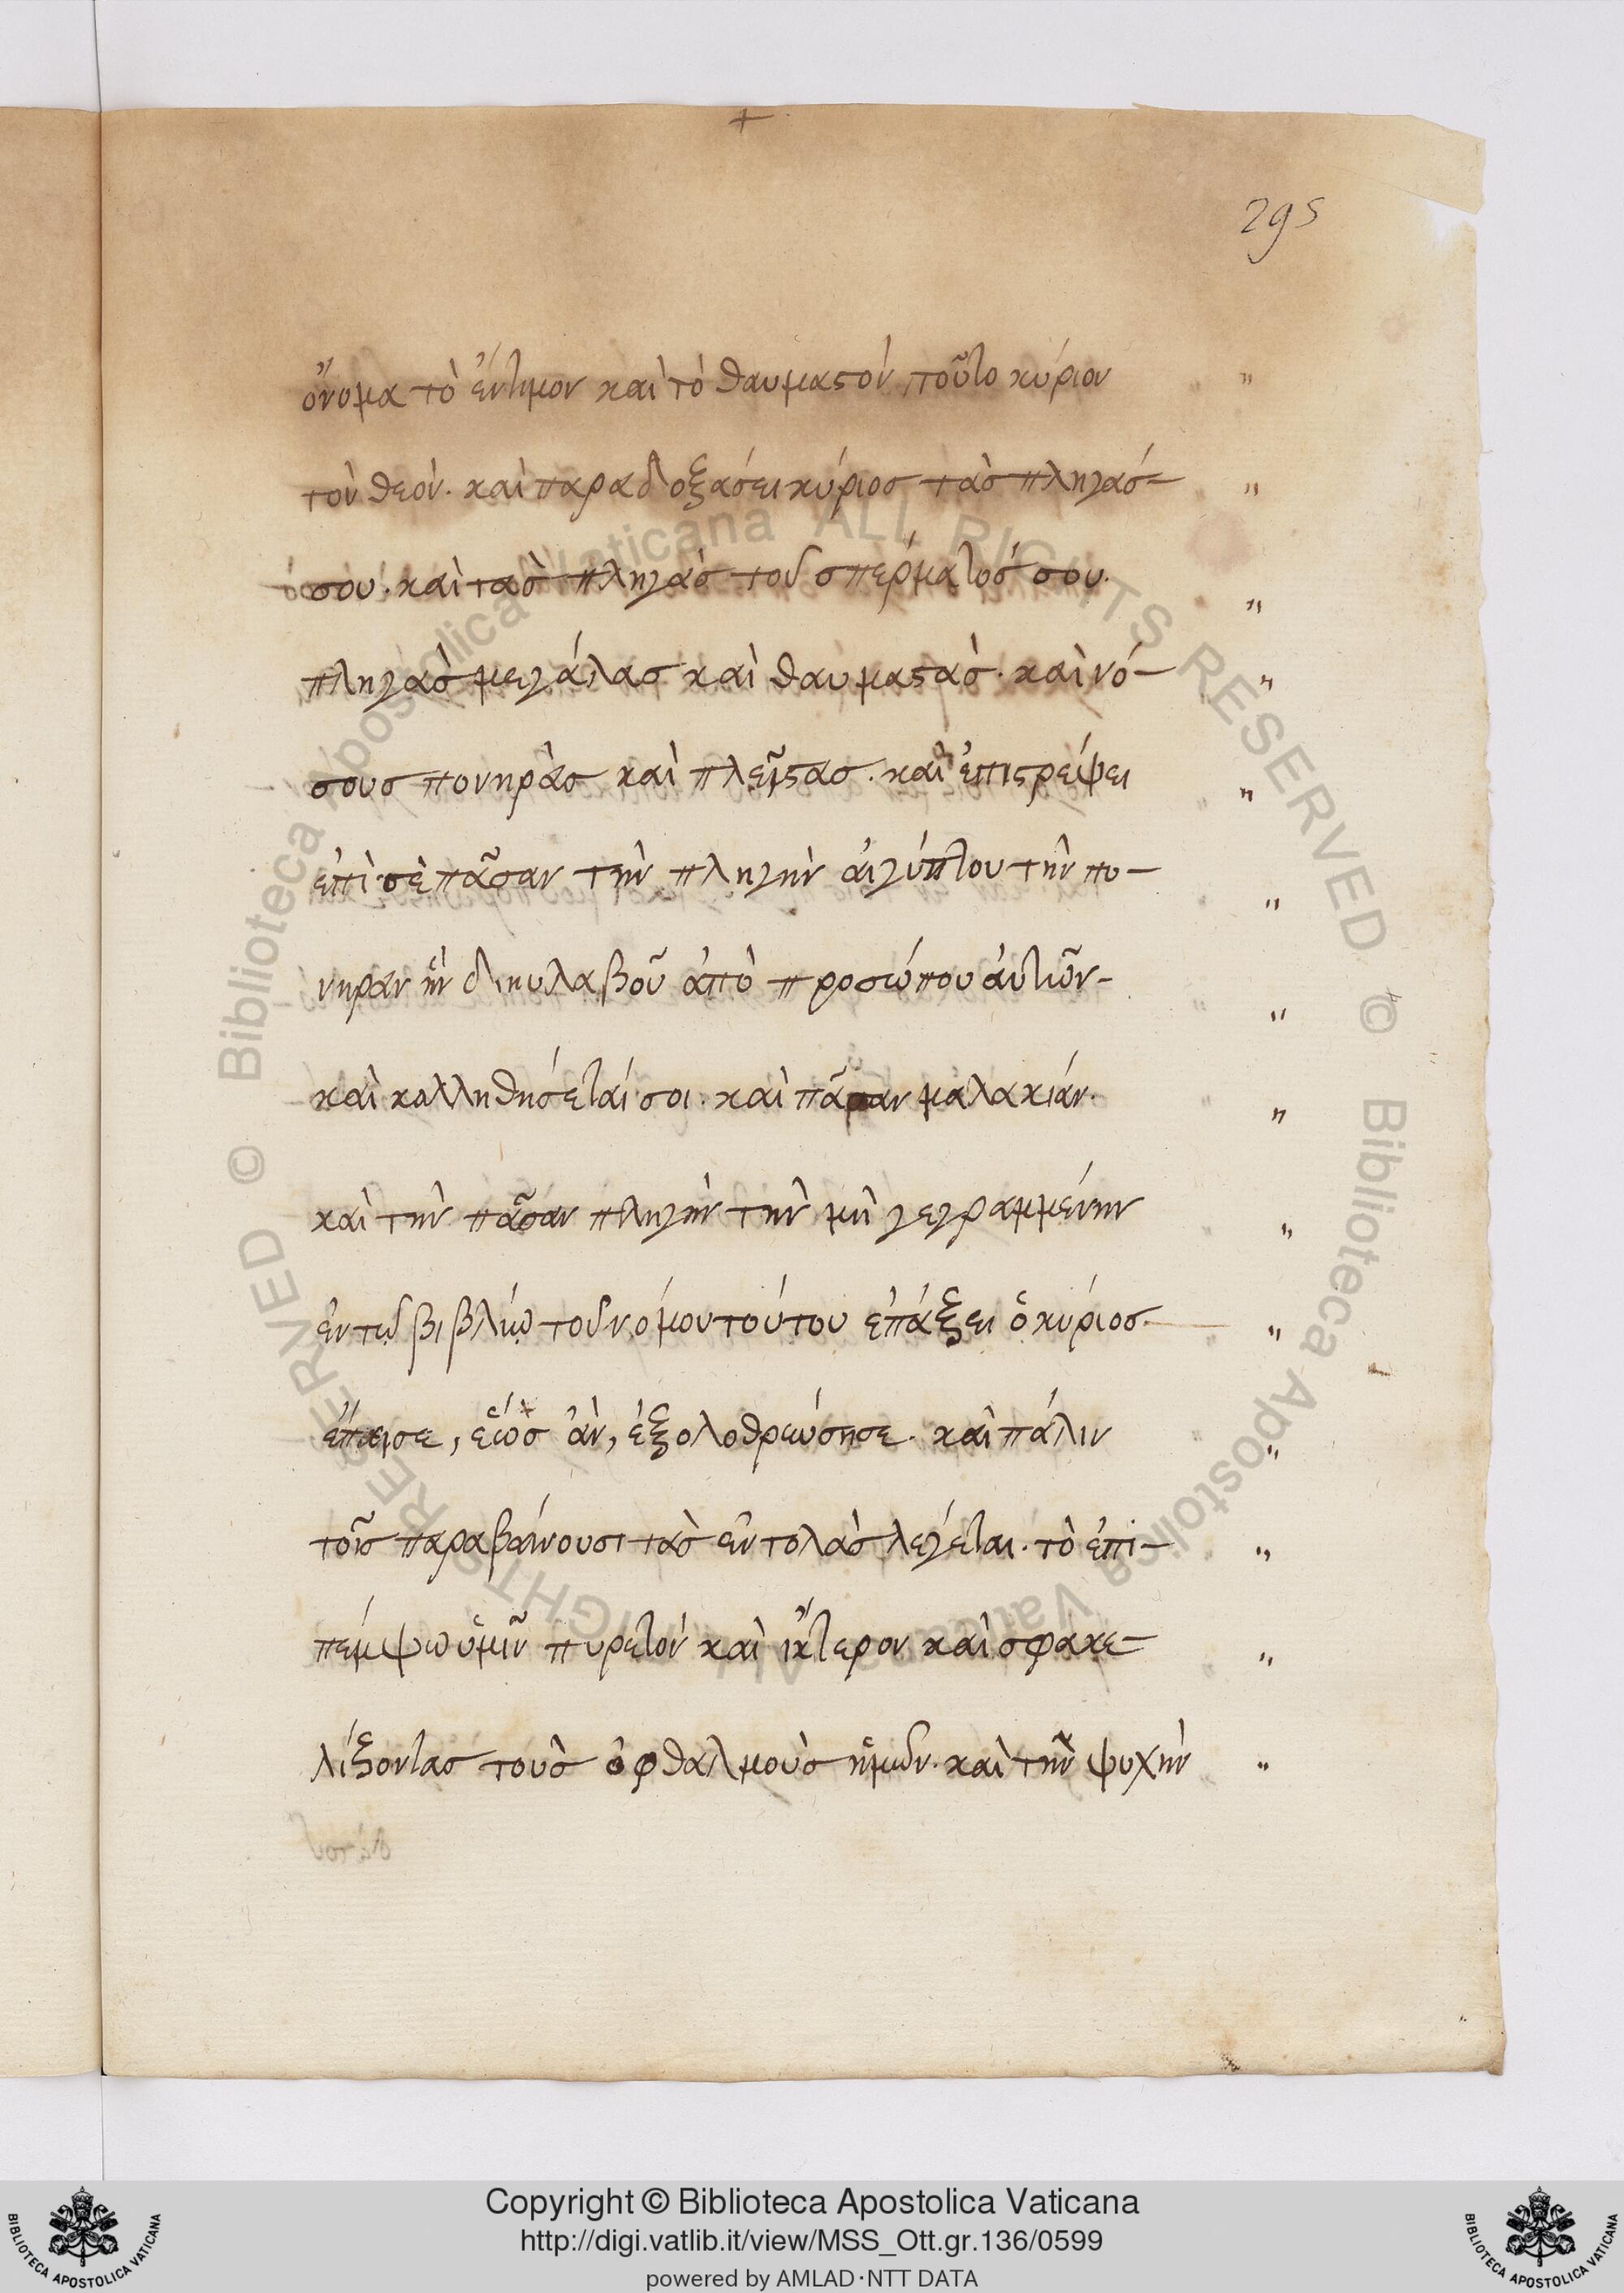 +
295
ὄνομα τὸ ἔντιμον καὶ τὸ θαυμαστόν τοῦτο κύριον "
τὸν θεόν. καὶ παραδοξάσει κύριος τὰς πληγάς "
σου. καὶ τὰς πληγὰς τοῦ σπέρματός σου. "
πληγὰς μεγάλας καὶ θαυμαστὰς. καὶ νό- "
σους πονηρὰς καὶ πλεῖστας. καὶ ἐπιστρέψει "
ἐπὶ σὲ πᾶσαν τὴν πληγὴν αἰγύπτου τὴν πο- "
νηρὰν ἣν διηυλαβοῦ ἀπὸ προσώπου αὐτῶν- "
καὶ κολληθήσεταί σοι. καὶ πᾶσαν μαλακίαν. "
καὶ τὴν πᾶσαν πληγὴν τὴν μὴ γεγραμμένην "
ἐν τῷ βιβλίῳ τοῦ νόμου τούτου ἐπάξει ὁ κύριος. "
ἐπι σε, ἕως ἂν, ἐξολοθρεύσησε. καὶ πάλιν "
τοῖς παραβαίνουσι τὰς ἐντολὰς λέγεται. τὸ ἐπι- "
πέμψω ὑμῖν πυρετὸν καὶ ἴκτερον καὶ σφακε- "
λίξοντας τοὺς ὀφθαλμοὺς ἡμῶν. καὶ τὴν ψυχὴν "
© Biblioteca Apostolica Vaticana ALL RIGHTS RESERVED © Biblioteca Apostolica Vaticana ALL RIGHTS RESERVED
Copyright © Biblioteca Apostolica Vaticana
http://digi.vatlib.it/view/MSS_Ott.gr.136/0599
powered by AMLAD·NTT DATA
BIBLIOTECA APOSTOLICA VATICANA
BIBLIOTECA APOSTOLICA VATICANA